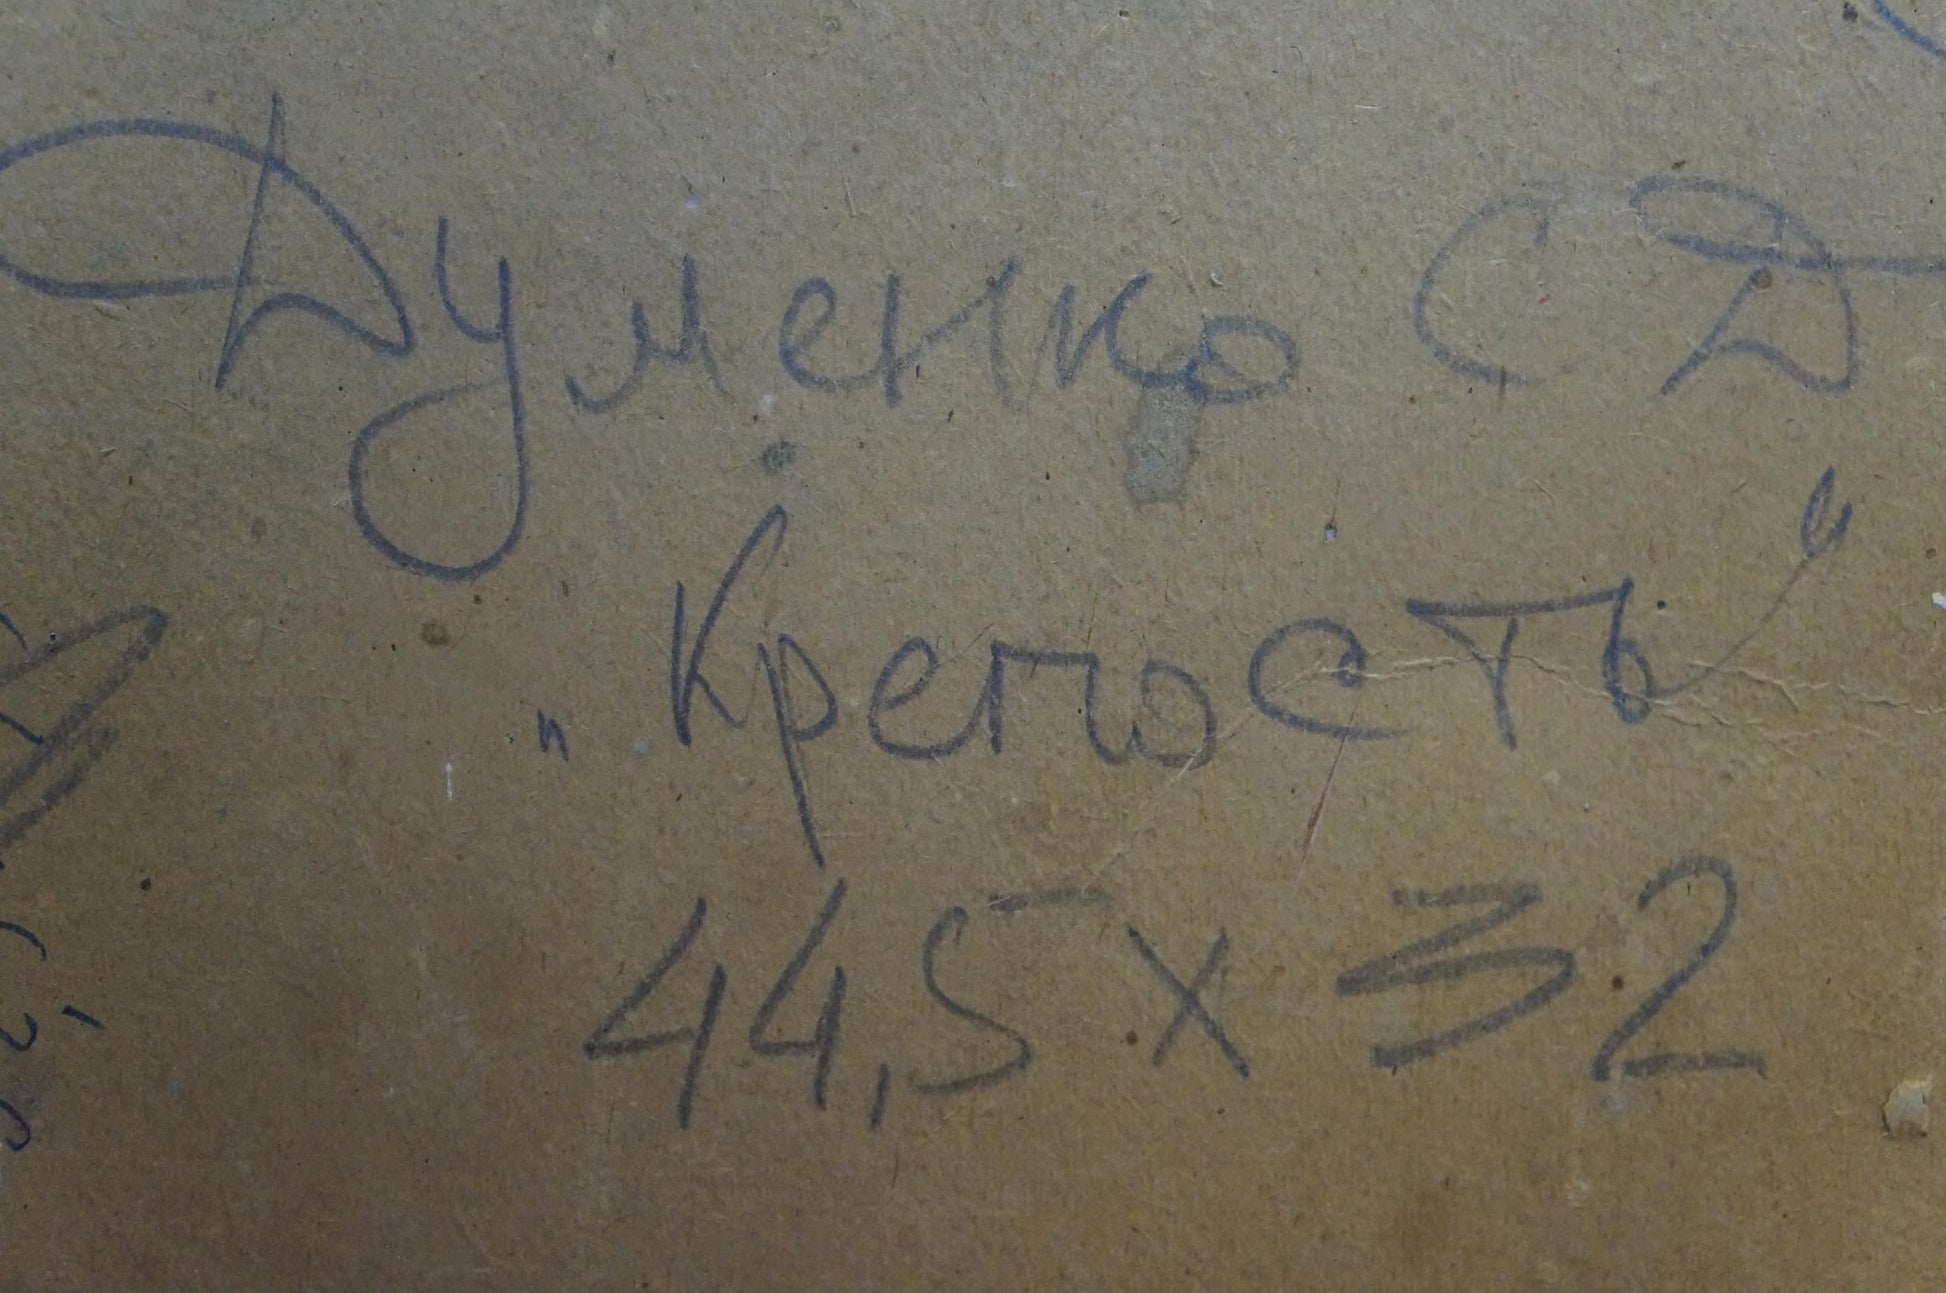 Думенко СД
„Крепость“
44,5 х 32